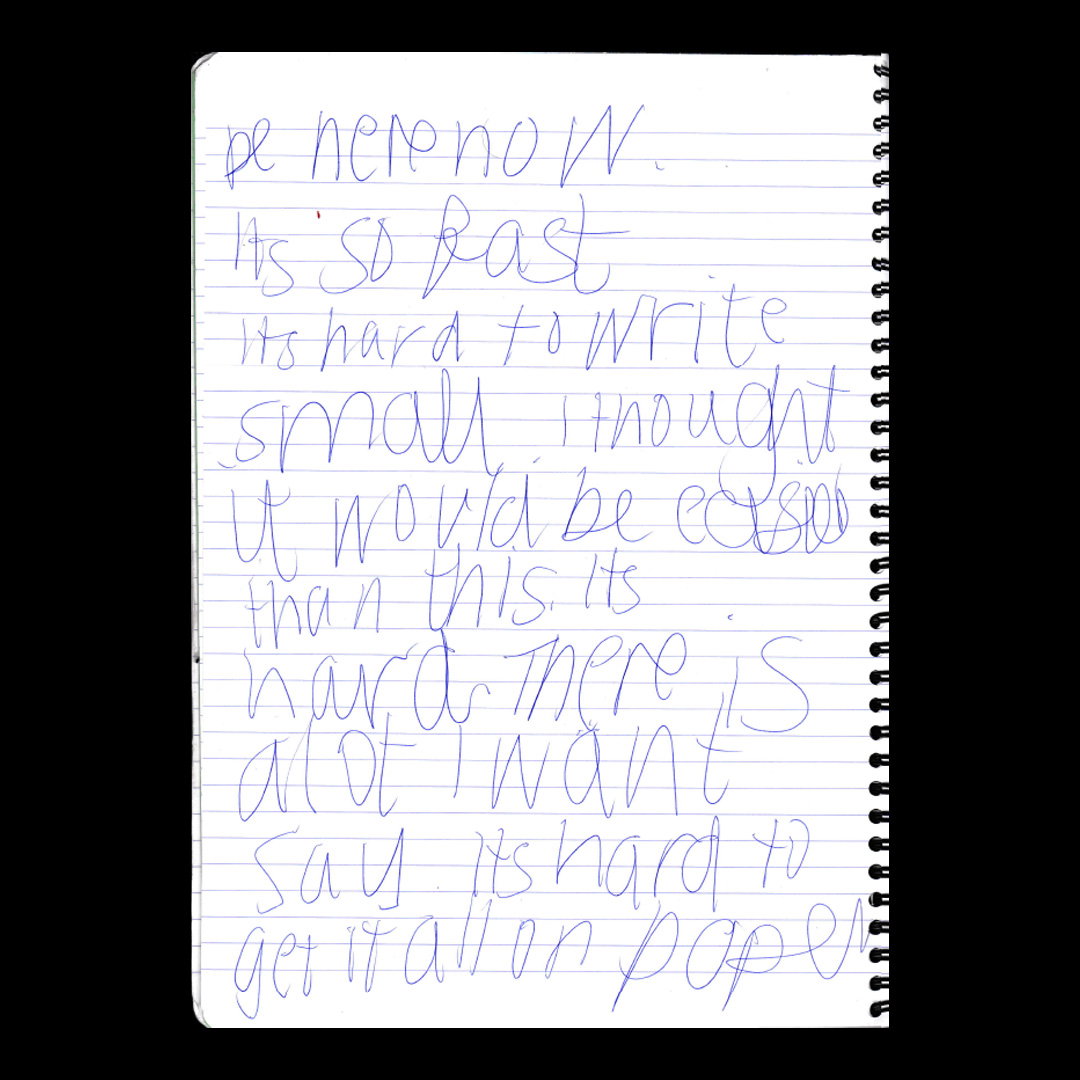 be here now.
Its so fast
Its hard to write
small I thought
it would be easier
than this. Its
hard There is
a lot I want
say Its hard to
get it all on paper